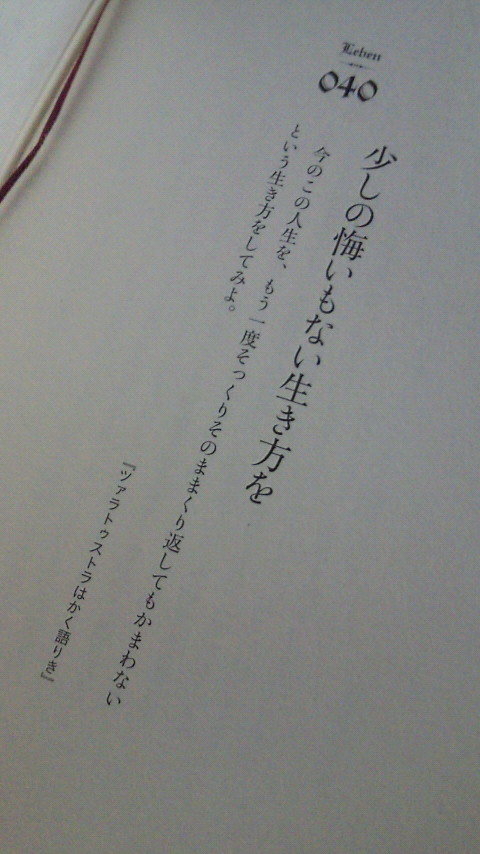 Leben
040
少しの悔いもない生き方を
今のこの人生を、もう一度そっくりそのままくり返してもかまわない
という生き方をしてみよ。
『ツァラトゥストラはかく語りき』